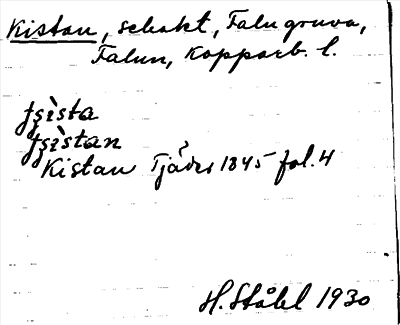 Kistan, schakt, Falu gruva,
Falun, Kopparb. l.
tʂìsta
tʂìstan
Kistan Tjäder 1845 fol. 4
H. Ståhl 1930